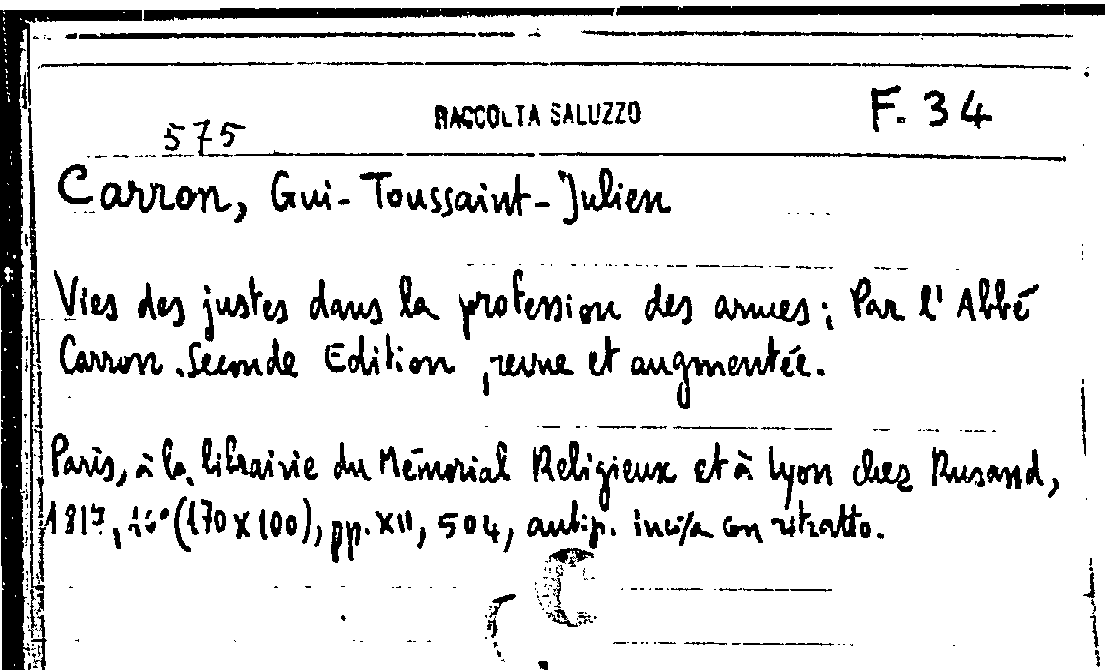 RACCOLTA SALUZZO
F. 34
575
Carron, Gui-Toussaint-Julien
Vies des justes dans la profession des armes; Par l'Abbé
Carron. Seconde Edition, revue et augmentée.
Paris, à la librairie du Mémorial Religieux et à Lyon chez Rusand,
1817, (170 x 100), pp. XII, 504, antip. incisa con ritratto.